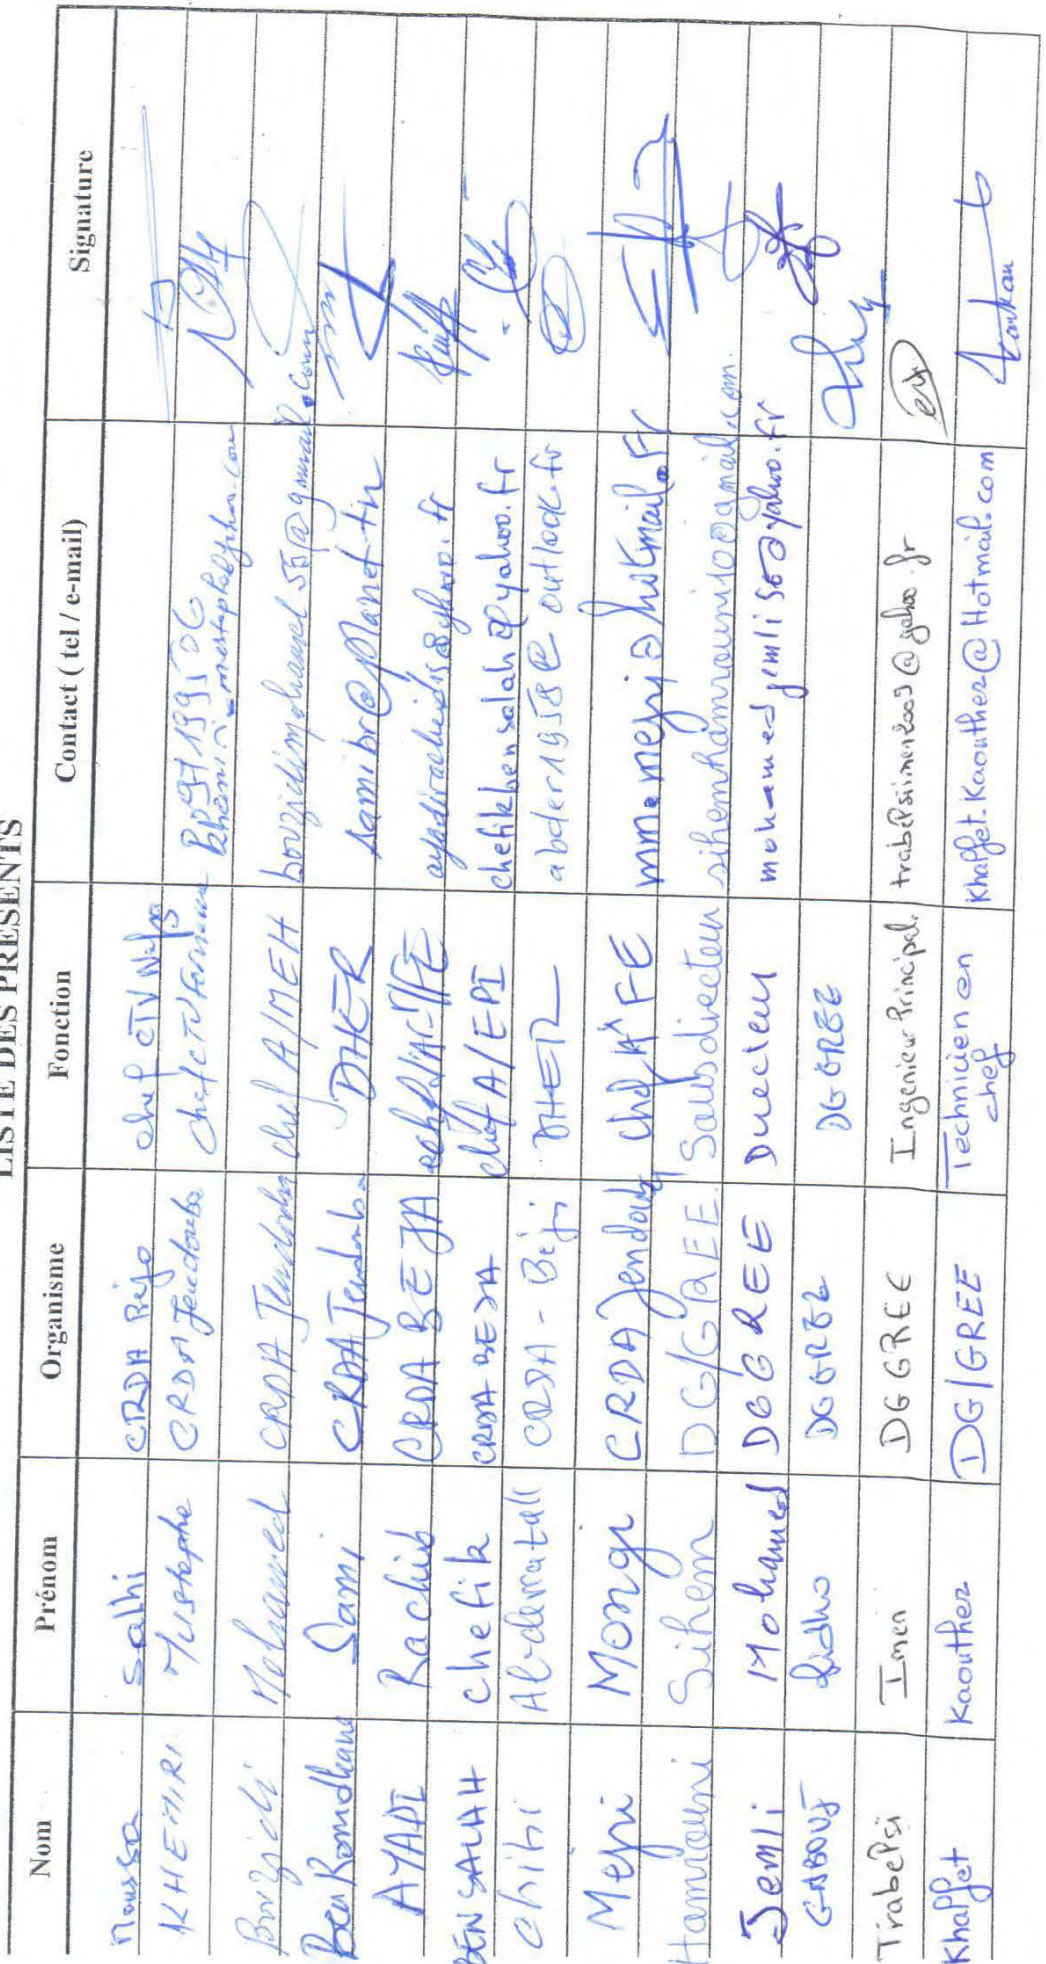 LISTE DES PRESENTS
Nom Prénom Organisme Fonction Contact ( tel / e-mail) Signature
Moussa Salhi CRDA Beja chef CTV Nefza
KHEMIRI Mustapha CRDA Jendouba chef CTV Fernana
Bouzidi Mohamed CRDA Jendouba chef A/MEH bouzidimohamed55@gmail.com
Ben Romdhane Sami CRDA Jendouba DHER samibr@planet.tn
AYADI Rachid CRDA BEJA
BEN SALAH chefik CRDA BEJA chef A/EPI chefikbensalah@yahoo.fr
Chihi CRDA - Béja DHER abder1958@outlook.fr
Mejri Mongi CRDA Jendouba chef A FE
Hamrouni Sihem DG/GREE Sousdirecteur sihemhamrouni10@gmail.com
Jemli Mohamed DGGREE Directeur
GABOUJ Ridha DGGREE DGGREE
Trabelsi Imen DGGREE Ingenieur Principal trabelsiimen2009@yahoo.fr
Khalfet Kaouther DG/GREE Technicien en Khalfet.Kaouther@Hotmail.com
chef